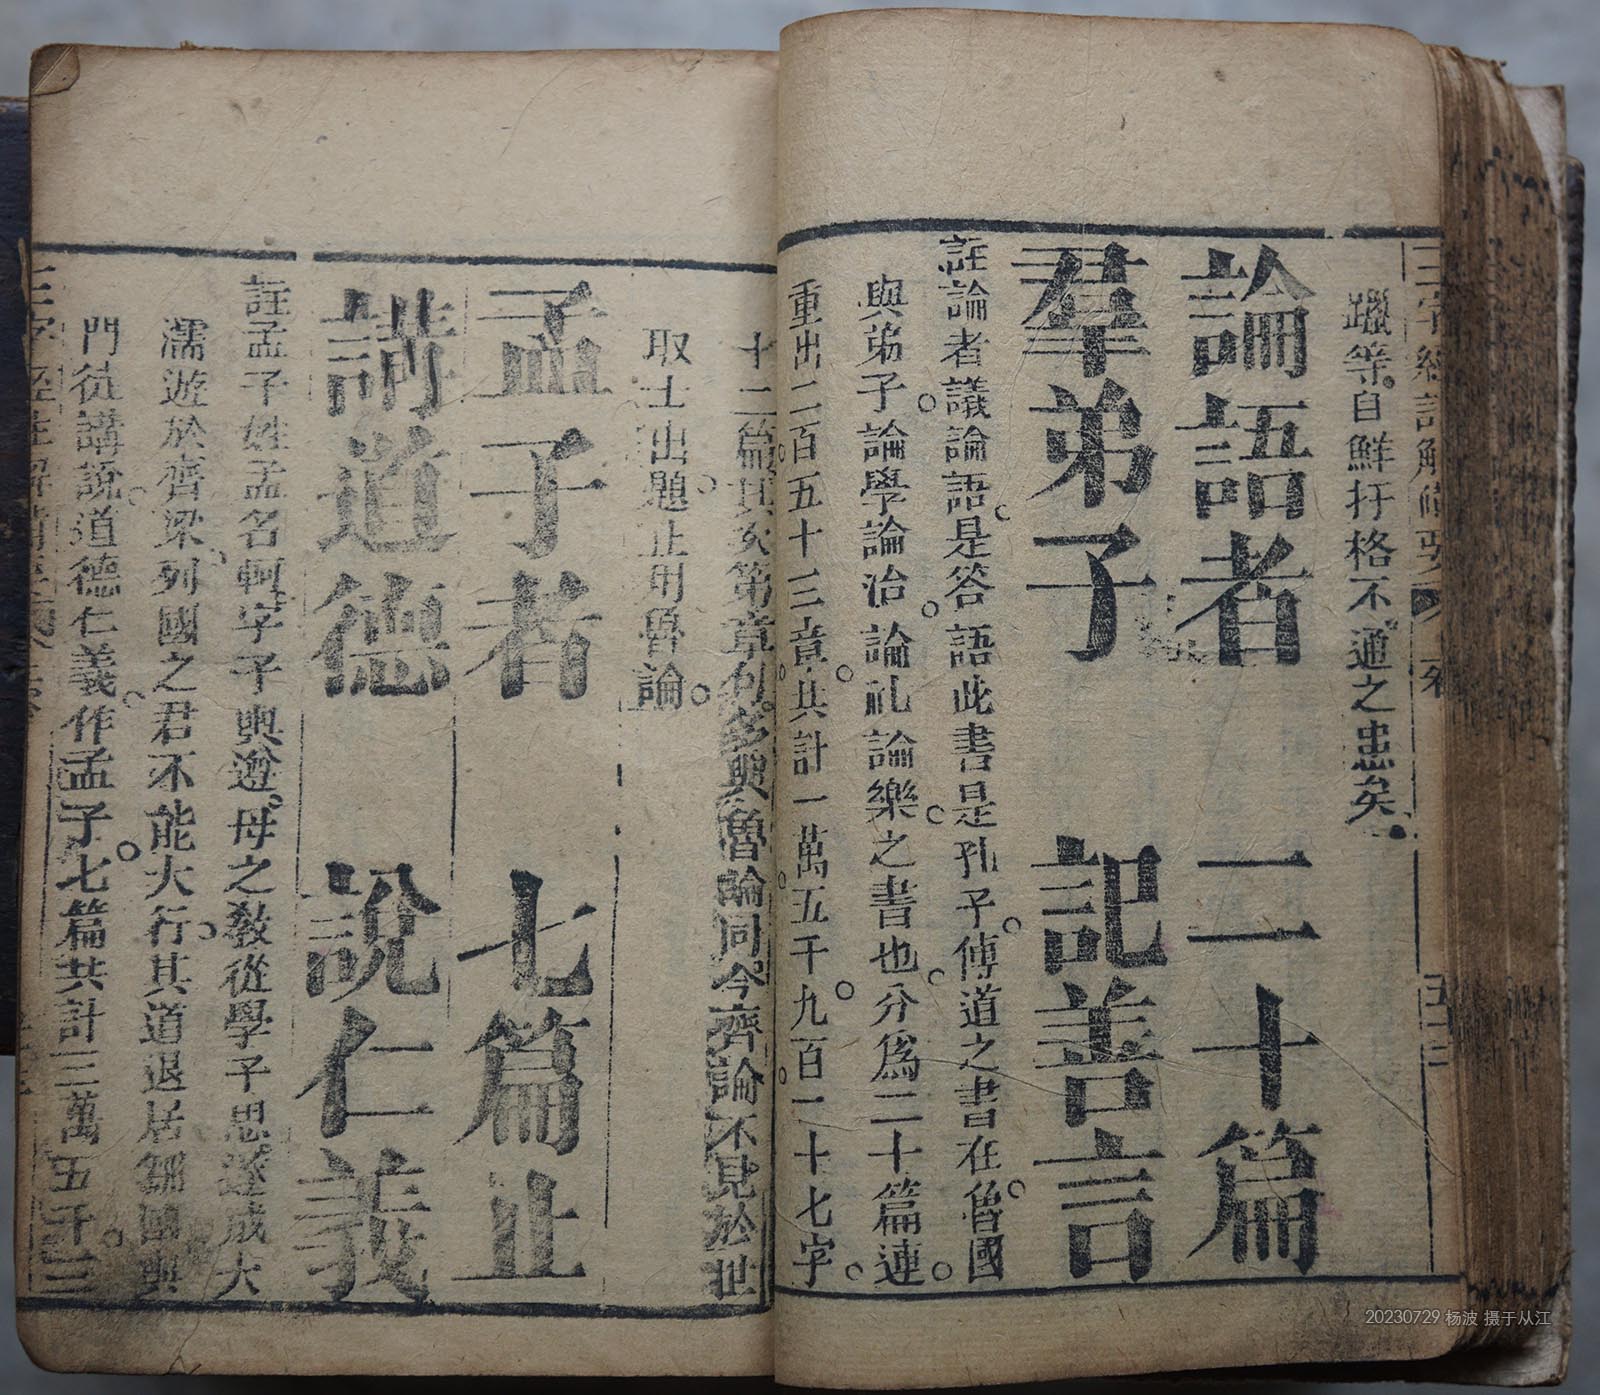 三字經註解備要
躐等。自鮮扞格不通之患矣。
論語者 二十篇
羣弟子 記善言
註論者議論語是答語此書是孔子傳道之書在魯國
與弟子論學論治論禮論樂之書也分爲二十篇連
重出二百五十三章共計一萬五千九百一十七字
十二篇其亥第章句多與魯論同今齊論不見於世
取士出題止用魯論
孟子者 七篇止
講道德 說仁義
註孟子姓孟名軻字子輿邀母之教從學子思遂成大
濡遊於齊梁列國之君不能大行其道退居鄒國與
門徒講說道德仁義作孟子七篇共計三萬五千三
20230729 杨波 摄于从江